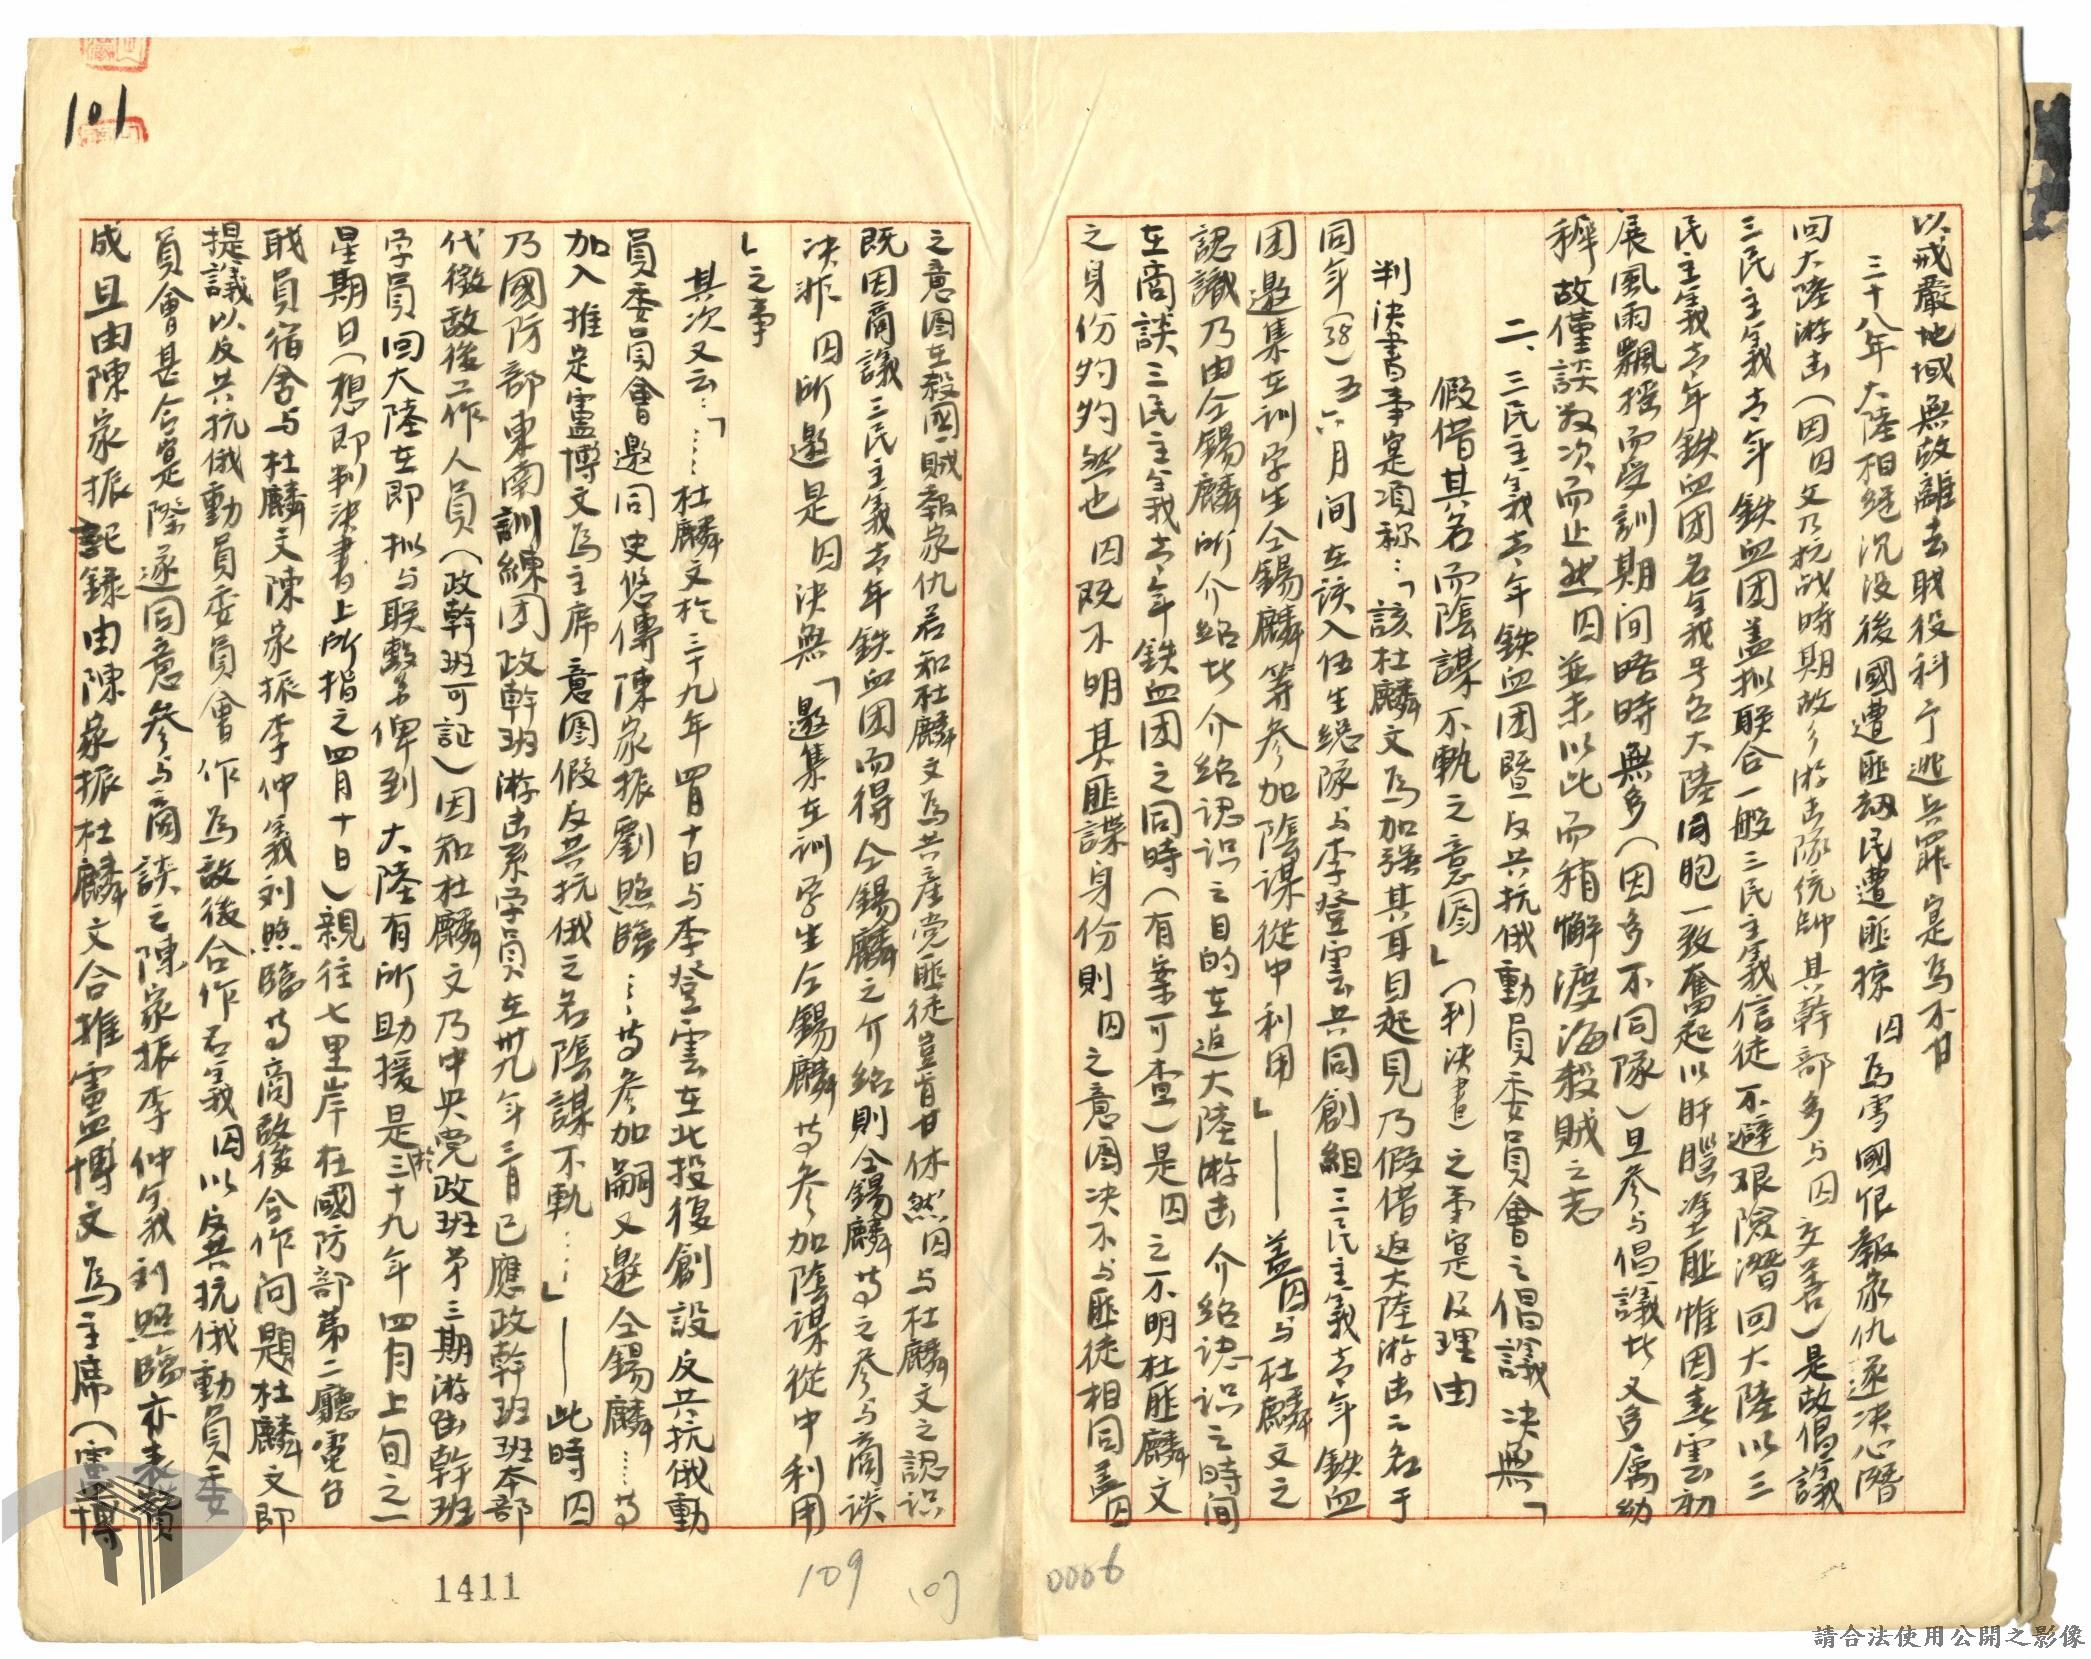 以戒嚴地域無故離去職役科予逃兵罪實為不甘
三十八年大陸相繼沉没後國遭匪刼民遭匪掠囚為雪國恨報家仇遂決心潛
回大陸游击(因囚父乃抗战時期故乡游击隊統帥其幹部多与囚交善)是故倡議
三民主義青年鉄血团盖拟联合一般三民主義信徒不避艰險潛回大陸以三
民主義青年鉄血团名義号召大陸同胞一致奮起以肝腦塗匪惟因素雲初
展風雨飄搖而受訓期间晤時無多(因多不同隊)且参与倡議此又多属幼
穉故僅談数次而止然囚並未以此而稍懈渡海殺贼之志
二、三民主義青年鉄血团暨反共抗俄動員委員會之倡議决無「
假借其名而陰謀不軌之意圖」(判決書)之事寔及理由
判決書事寔項称:「該杜麟文為加强其耳目起見乃假借返大陸游击之名于
同年(38)五六月间在該入伍生總隊与李登雲共同創組三民主義青年鉄血
团邀集在训学生仝錫麟等参加陰謀從中利用」——盖囚与杜麟文之
認識乃由仝錫麟所介绍此介绍認识之目的在返大陸游击介绍認识之時间
在商談三民主義青年鉄血团之同時(有案可查)是囚之不明杜匪麟文
之身份灼灼然也囚既不明其匪諜身份則囚之意圖决不与匪徒相同盖囚
之意图在殺國贼報家仇若知杜麟文為共産党匪徒豈肯甘休然囚与杜麟文之認识
既因商議三民主義青年鉄血团而得仝錫麟之介绍則仝錫麟等之参与商谈
决非囚所邀是囚决無「邀集在训学生仝錫麟等参加陰謀從中利用
」之事
其次又云:「……杜麟文於三十九年四月十日与李登雲在北投復創設反共抗俄動
員委員會邀同史悠傳陳家振劉照臨……等参加嗣又邀仝錫麟……等
加入推定盧博文為主席意图假反共抗俄之名陰謀不軌……」——此時囚
乃國防部東南訓練团政幹班游击系学員在卅九年三月已應政幹班班本部
代徵敌後工作人員(政幹班可証)因知杜麟文乃中央党政班第三期游击幹班
学員回大陸在即拟与联繫俾到大陸有所助援是於三十九年四月上旬之一
星期日(想即判決書上所指之四月十日)親往七里岸在國防部第二廳電台
职員宿舍与杜麟文陳家振李仲義刘照臨等商敌後合作问題杜麟文即
提議以反共抗俄動員委員會作為敌後合作名義囚以反共抗俄動員委
員會甚合寔際遂同意参与商談之陳家振李仲義刘照臨亦表贊
成且由陳家振記錄由陳家振杜麟文合推盧博文為主席(盧博
101
1411
109
107
0006
請合法使用公開之影像